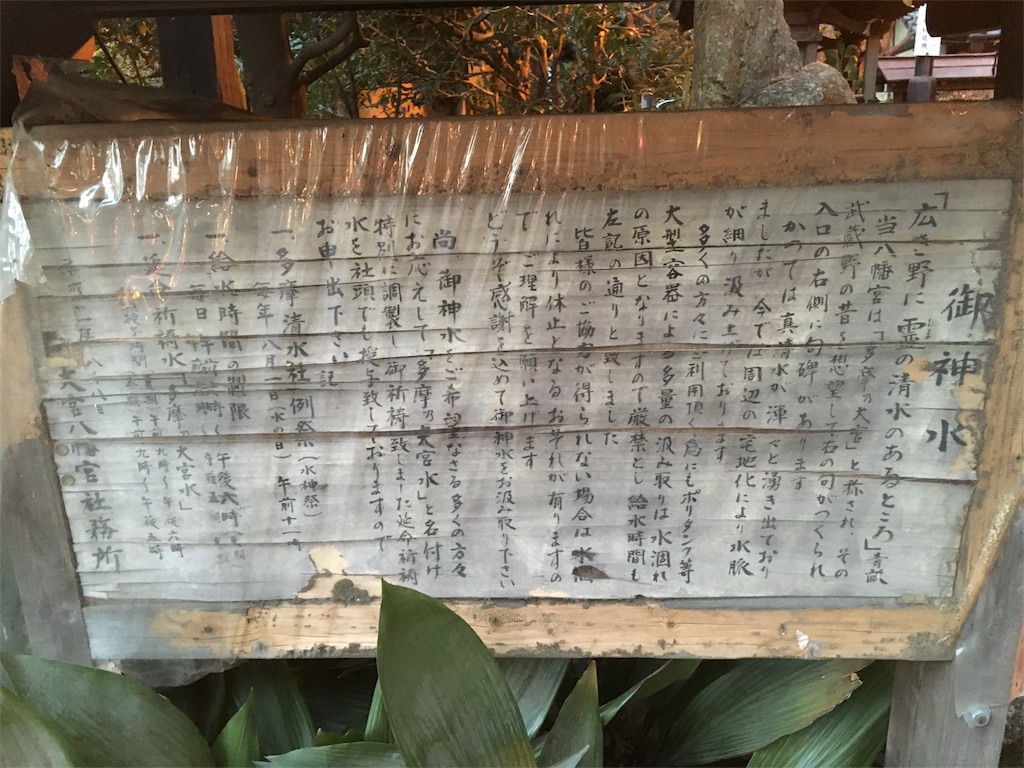 御神水
「広き野に霊の清水のあるところ」青畝
当八幡宮は「多摩乃大宮」と称され、その
武蔵野の昔を想望して右の句がつくられ
入口の右側に句碑があります
かつては真清水が渾々と湧き出ており
ましたが 今では周辺の宅地化により水脈
が細り 汲み上げております
多くの方々にご利用頂く為にもポリタンク等
大型容器による多量の汲み取りは水涸れ
の原因となりますので厳禁とし 給水時間も
左記の通りと致しました
皆様のご協力が得られない場合は
れにより休止となるおそれが有りますの
で ご理解を願い上げます
どうぞ感謝を込めて御神水をお汲み取り下さい
尚 御神水をご希望なさる多くの方々
にお応えして「多摩乃大宮水」と名付け
特別に調製し 御祈祷致しました延命祈祷
水を社頭でも授与致しておりますので
お申し出下さい
記
一、多摩清水社例祭(水神祭)
毎年八月一日(水の日) 午前十一時
一、給水時間の制限
毎日 午前 時〜午後六時
祈祷水「多摩乃大宮水」
午前九時〜午後六時
午前九時〜午後五時
大宮八幡宮社務所